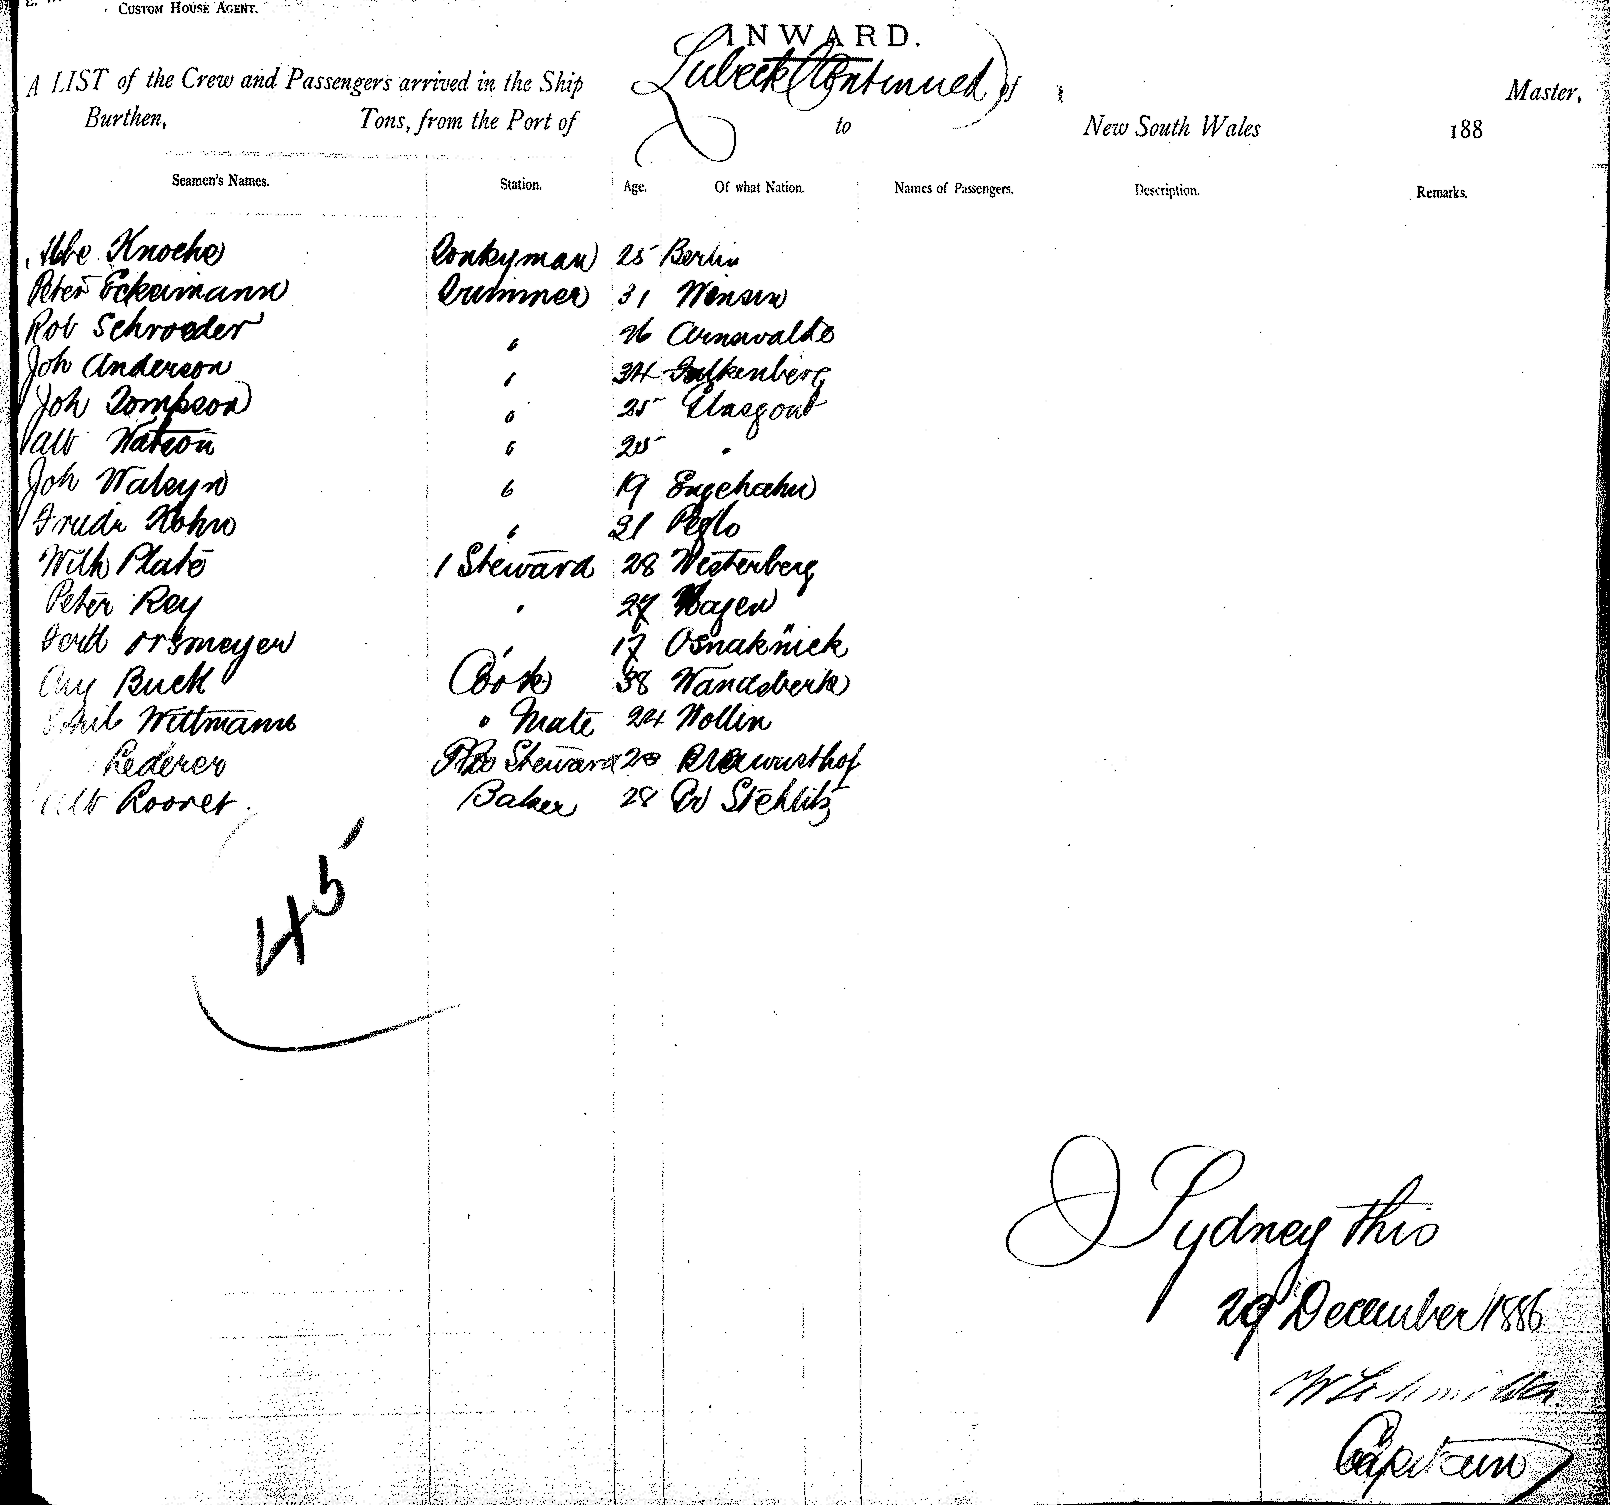 CUSTOM HOUSE AGENT.
INWARD.
A LIST of the Crew and Passengers arrived in the Ship Lubeck (Continued) of Master,
Burthen, Tons, from the Port of to New South Wales 188
Seamen's Names. Station. Age. Of what Nation. Names of Passengers. Description. Remarks.
Knoche Donkyman 25 Berlin
Peter Eckermann Drimmer 31 Winsen
Rob Schroeder " 26 Arnswalde
Joh Anderson " 34 Falkenberg
Joh Tompson " 25 Glasgow
Alb Watson " 25 "
Joh Walsyn " 19 Engehahn
Kohn " 21
Wilh Plate 1 Steward 28 Westerberg
Peter Rey " 27 Hagen
17
Aug Buck Cook 38 Wandsbeck
Wittmann " Mate 24 Wollin
Lederer Steward
Baker 28 Stehlitz
45
Sydney this
29 December 1886
Capitain